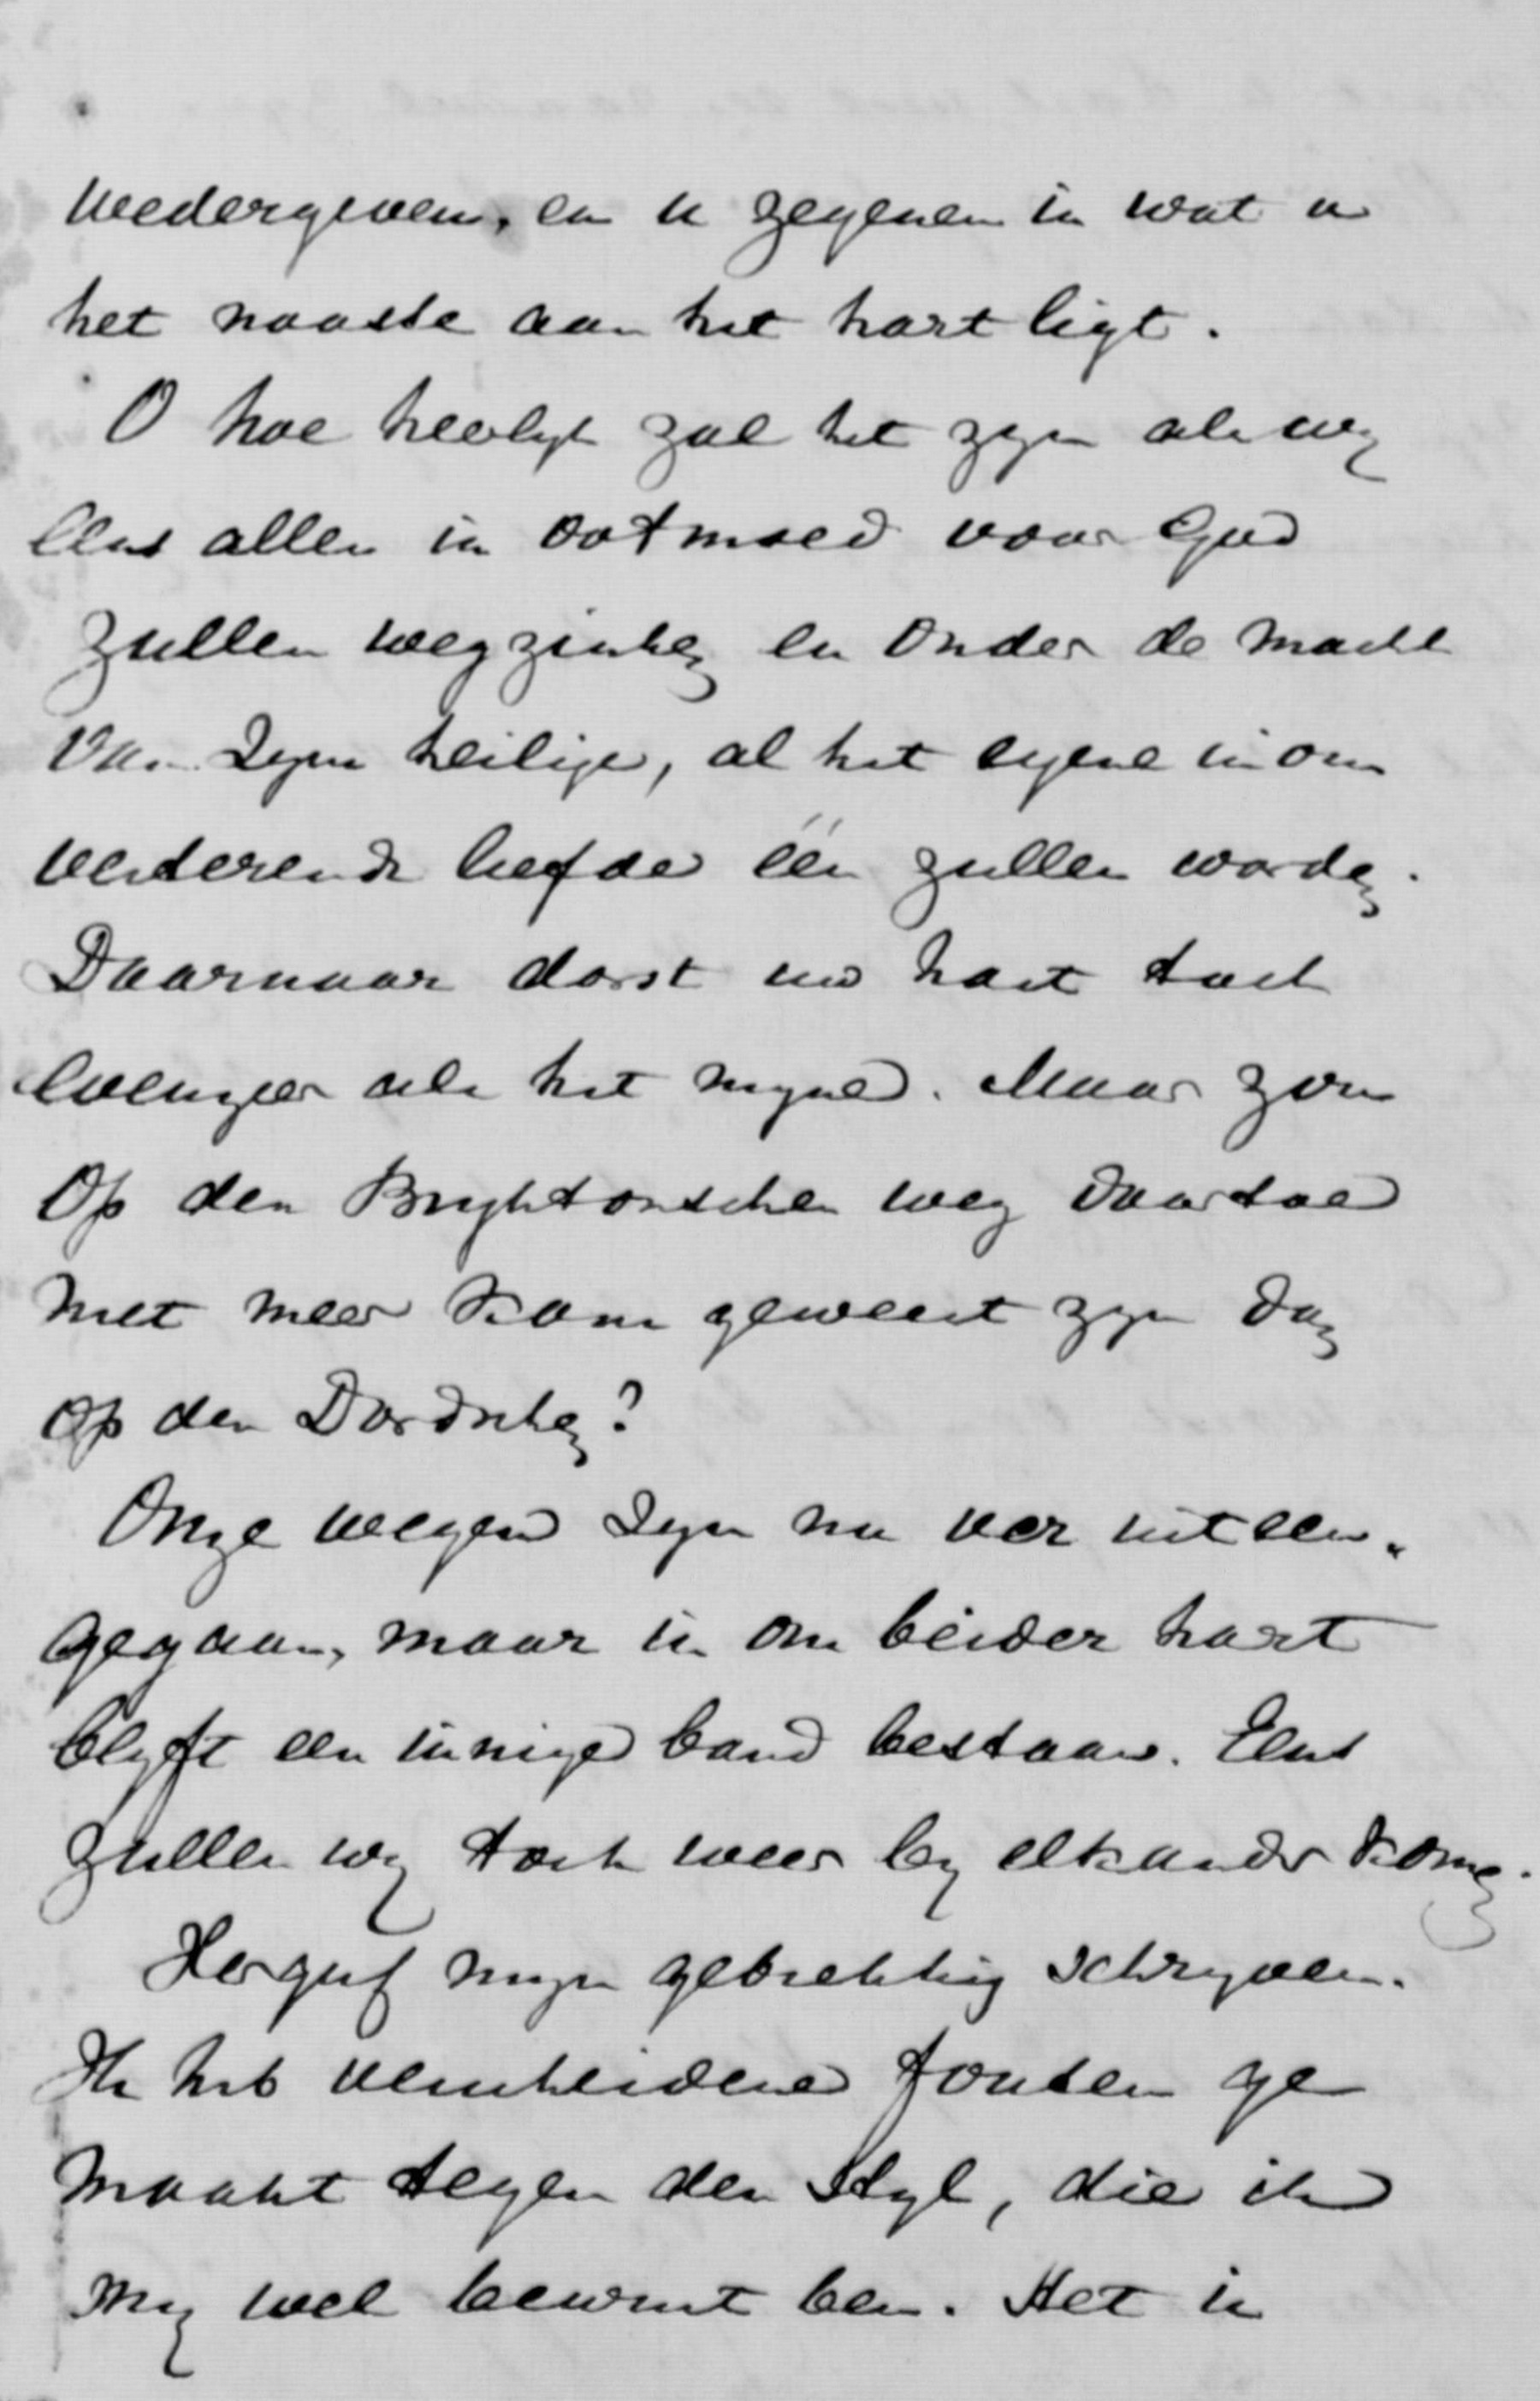 wedergeven, en u zegenen in wat u
het naaste aan het hart ligt.
O hoe heerlyk zal het zyn als wy
eens allen in ootmoed voor God
zullen wegzinken en onder de macht
van Zyn heilige, al het eigene in ons
verterende liefde één zullen worden.
Daarnaar dorst uw hart toch
evenzeer als het myne. Maar zou
op den Brightonschen weg daartoe
niet meer kans geweest zyn dan
op den Dordtschen?
Onze wegen zyn nu ver uiteen
gegaan, maar in ons beider hart
blyft een innige band bestaan. Eens
zullen wy toch weer by elkander komen.
Vergeef myn gebrekkig schryven.
Ik heb verscheidene fouten ge
maakt tegen den styl, die ik
my wel bewust ben. Het is